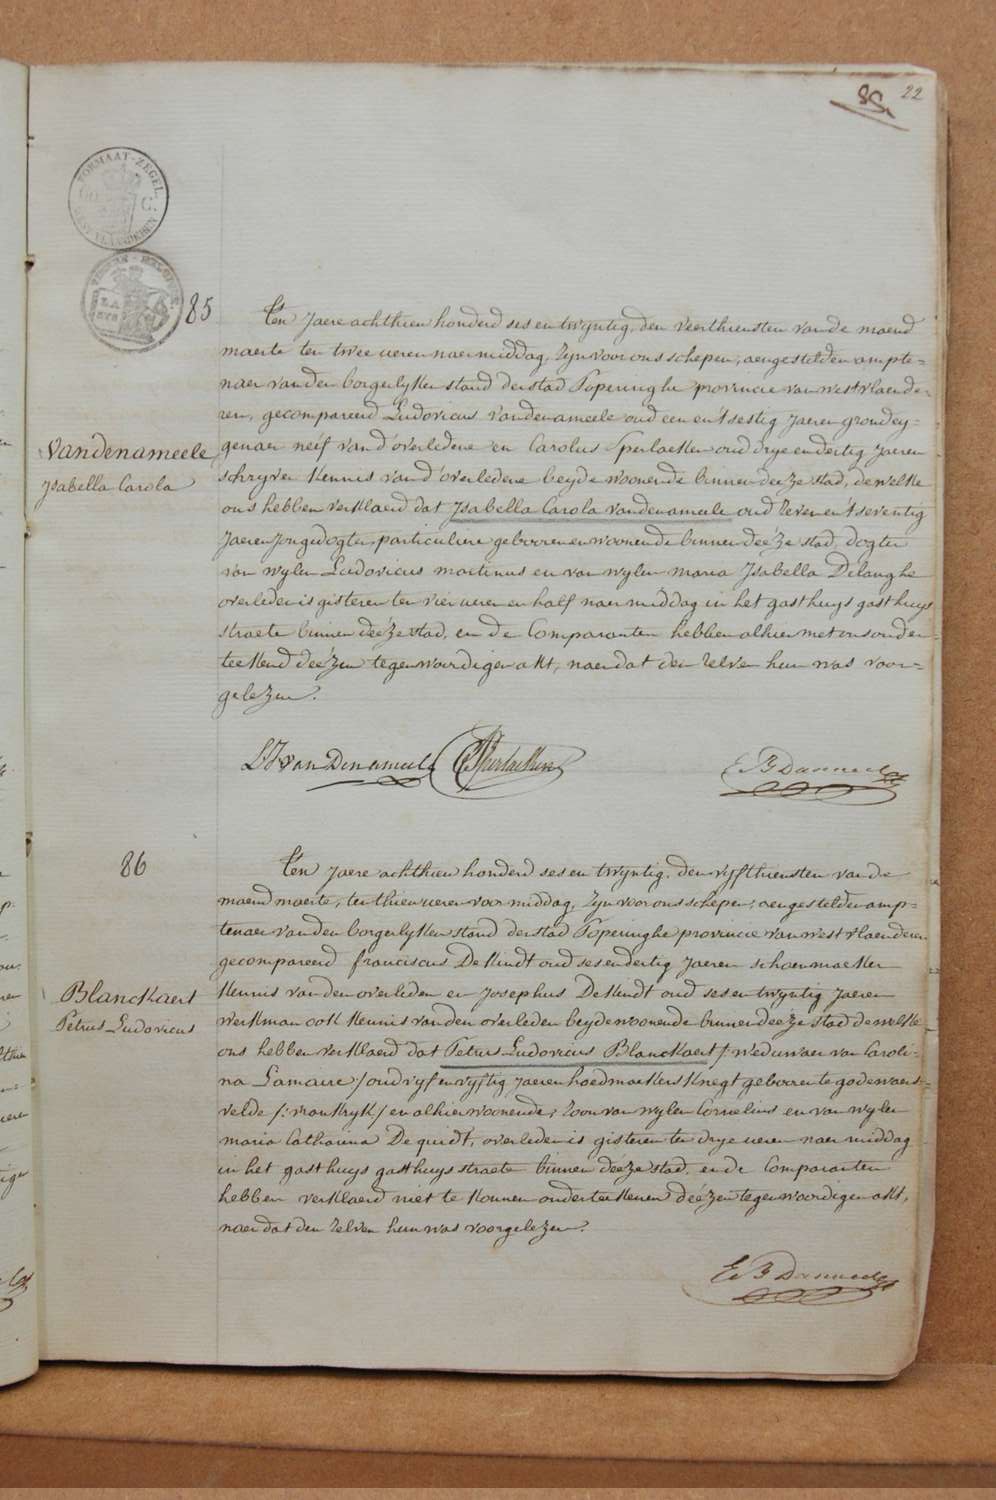 22
85.
FORMAAT-ZEGEL.
WEST VLAENDEREN
85
Ten Jaere achthien honderd ses en twyntig, den veerthiensten van de maend
maerte ten twee ueren naer middag, zyn voor ons schepen, aengestelden ampte=
naer van den borgerlyken stand der stad Poperinghe provincie van westvlaende=
ren, gecompareerd Ludovicus vandenameele oud een en 't sestig Jaeren grondey=
genaer neéf van d'overledene en Carolus Sperlaeken oud drye en dertig Jaeren
Vandenameele
Ysabella Carola
schryver kennis van d'overledene beyde woonende binnen deéze stad, dewelke
ons hebben verklaerd dat Ysabella Carola vandenameele oud zeven en 't seventig
Jaeren Jongedogter, particuliere gebooren en woonende binnen deéze stad, dogter
van wylen Ludovicus martinus en van wylen maria Ysabella Delanghe
overleden is gisteren ten vier ueren en half naermiddag in het gasthuys gasthuys
straete binnen deéze stad, en de Comparanten hebben alhier met ons onder=
teekend deézen tegenwoordigen akt, naer dat den zelven hun was voor=
gelezen.
LJ Van Denameele CSperlaeken EB Dannoo
86
Ten Jaere achthien honderd ses en twyntig, den vyfthiensten van de
maend maerte, ten thien ueren voor middag, zyn voor ons schepen, aengestelden amp=
tenaer van den borgerlyken stand der stad Poperinghe provincie van westvlaenderen
gecompareerd franciscus DeKindt oud ses en dertig Jaeren schoenmaeker
Blanckaert
Petrus Ludovicus
kennis van den overleden en Josephus DeKindt oud ses en twyntig Jaeren
werkman ook kennis van den overleden beyde woonende binnen deéze stad dewelke
ons hebben verklaerd dat Petrus Ludovicus Blanckaert / weduwaer van Caroli=
na Lamaire / oud vyf en vyftig Jaeren hoedmaekers knegt gebooren te godewaers=
velde /: vrankryk / en alhier woonende, zoon van wylen Cornelius en van wylen
maria Catharina De quidt, overleden is gisteren ten drye ueren naer middag
in het gasthuys gasthuys straete binnen deéze stad, en de Comparanten
hebben verklaerd niet te konnen onderteekenen deézen tegenwoordigen akt,
naer dat den zelven hun was voorgelezen.